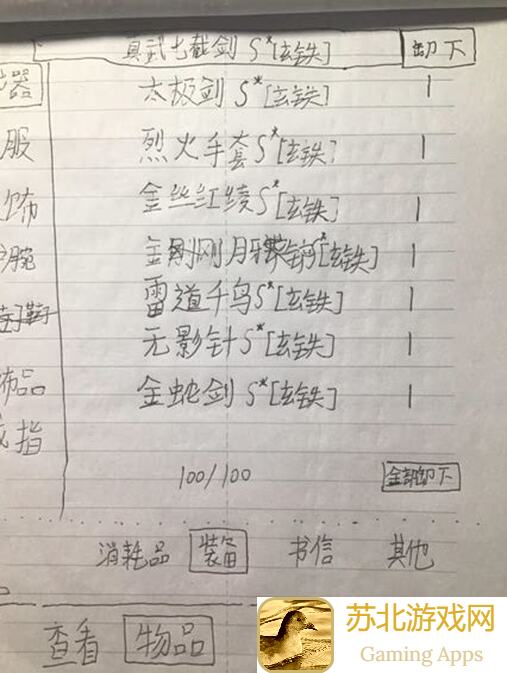 真武七截剑 S*[玄铁] 卸下
器 太极剑 S*[玄铁] 1
服 烈火手套S*[玄铁] 1
饰 金丝红绫S*[玄铁] 1
腕 金刚 月牙 S*[玄铁] 1
鞋 雷道千鸟S*[玄铁] 1
无影针S*[玄铁] 1
饰品 金蛇剑 S*[玄铁] 1
戒指
100/100 全部卸下
消耗品 装备 书信 其他
查看 物品
苏北游戏网
Gaming Apps